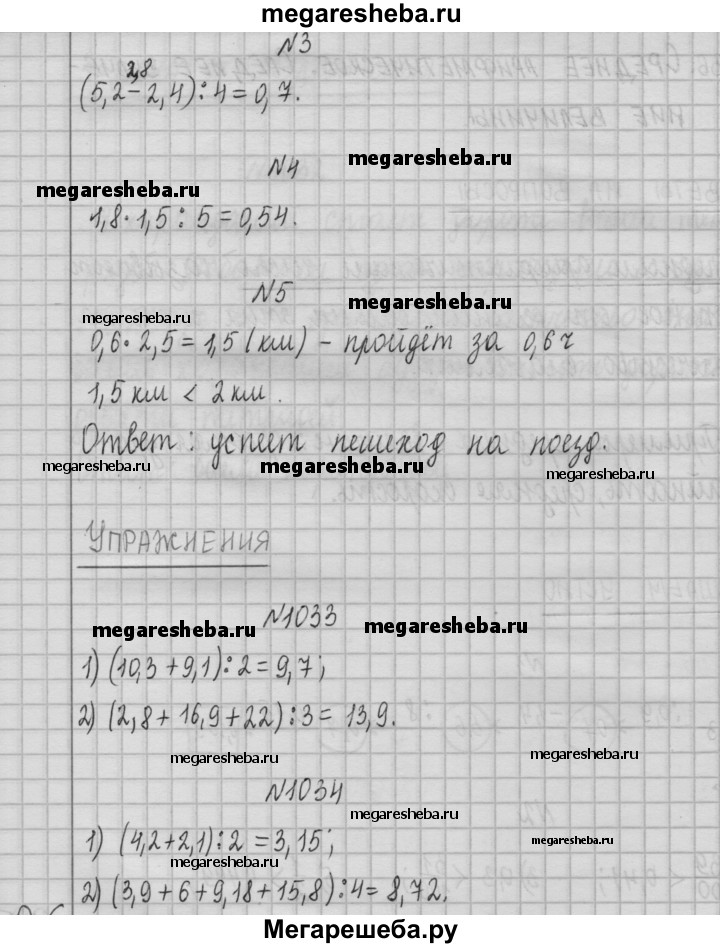 megaresheba.ru
N3
2,8
(5,2 − 2,4) : 4 = 0,7.
N4
megaresheba.ru
megaresheba.ru
1,8 · 1,5 : 5 = 0,54.
N5
megaresheba.ru
megaresheba.ru
0,6 · 2,5 = 1,5 (км) – пройдёт за 0,6 ч
1,5 км < 2 км.
Ответ: успеет пешеход на поезд.
megaresheba.ru
megaresheba.ru
megaresheba.ru
УПРАЖНЕНИЯ
N1033
megaresheba.ru
megaresheba.ru
1) (10,3 + 9,1) : 2 = 9,7;
2) (2,8 + 16,9 + 22) : 3 = 13,9.
megaresheba.ru
megaresheba.ru
N1034
megaresheba.ru
1) (4,2 + 2,1) : 2 = 3,15;
megaresheba.ru
megaresheba.ru
2) (3,9 + 6 + 9,18 + 15,8) : 4 = 8,72.
Мегарешеба.ру